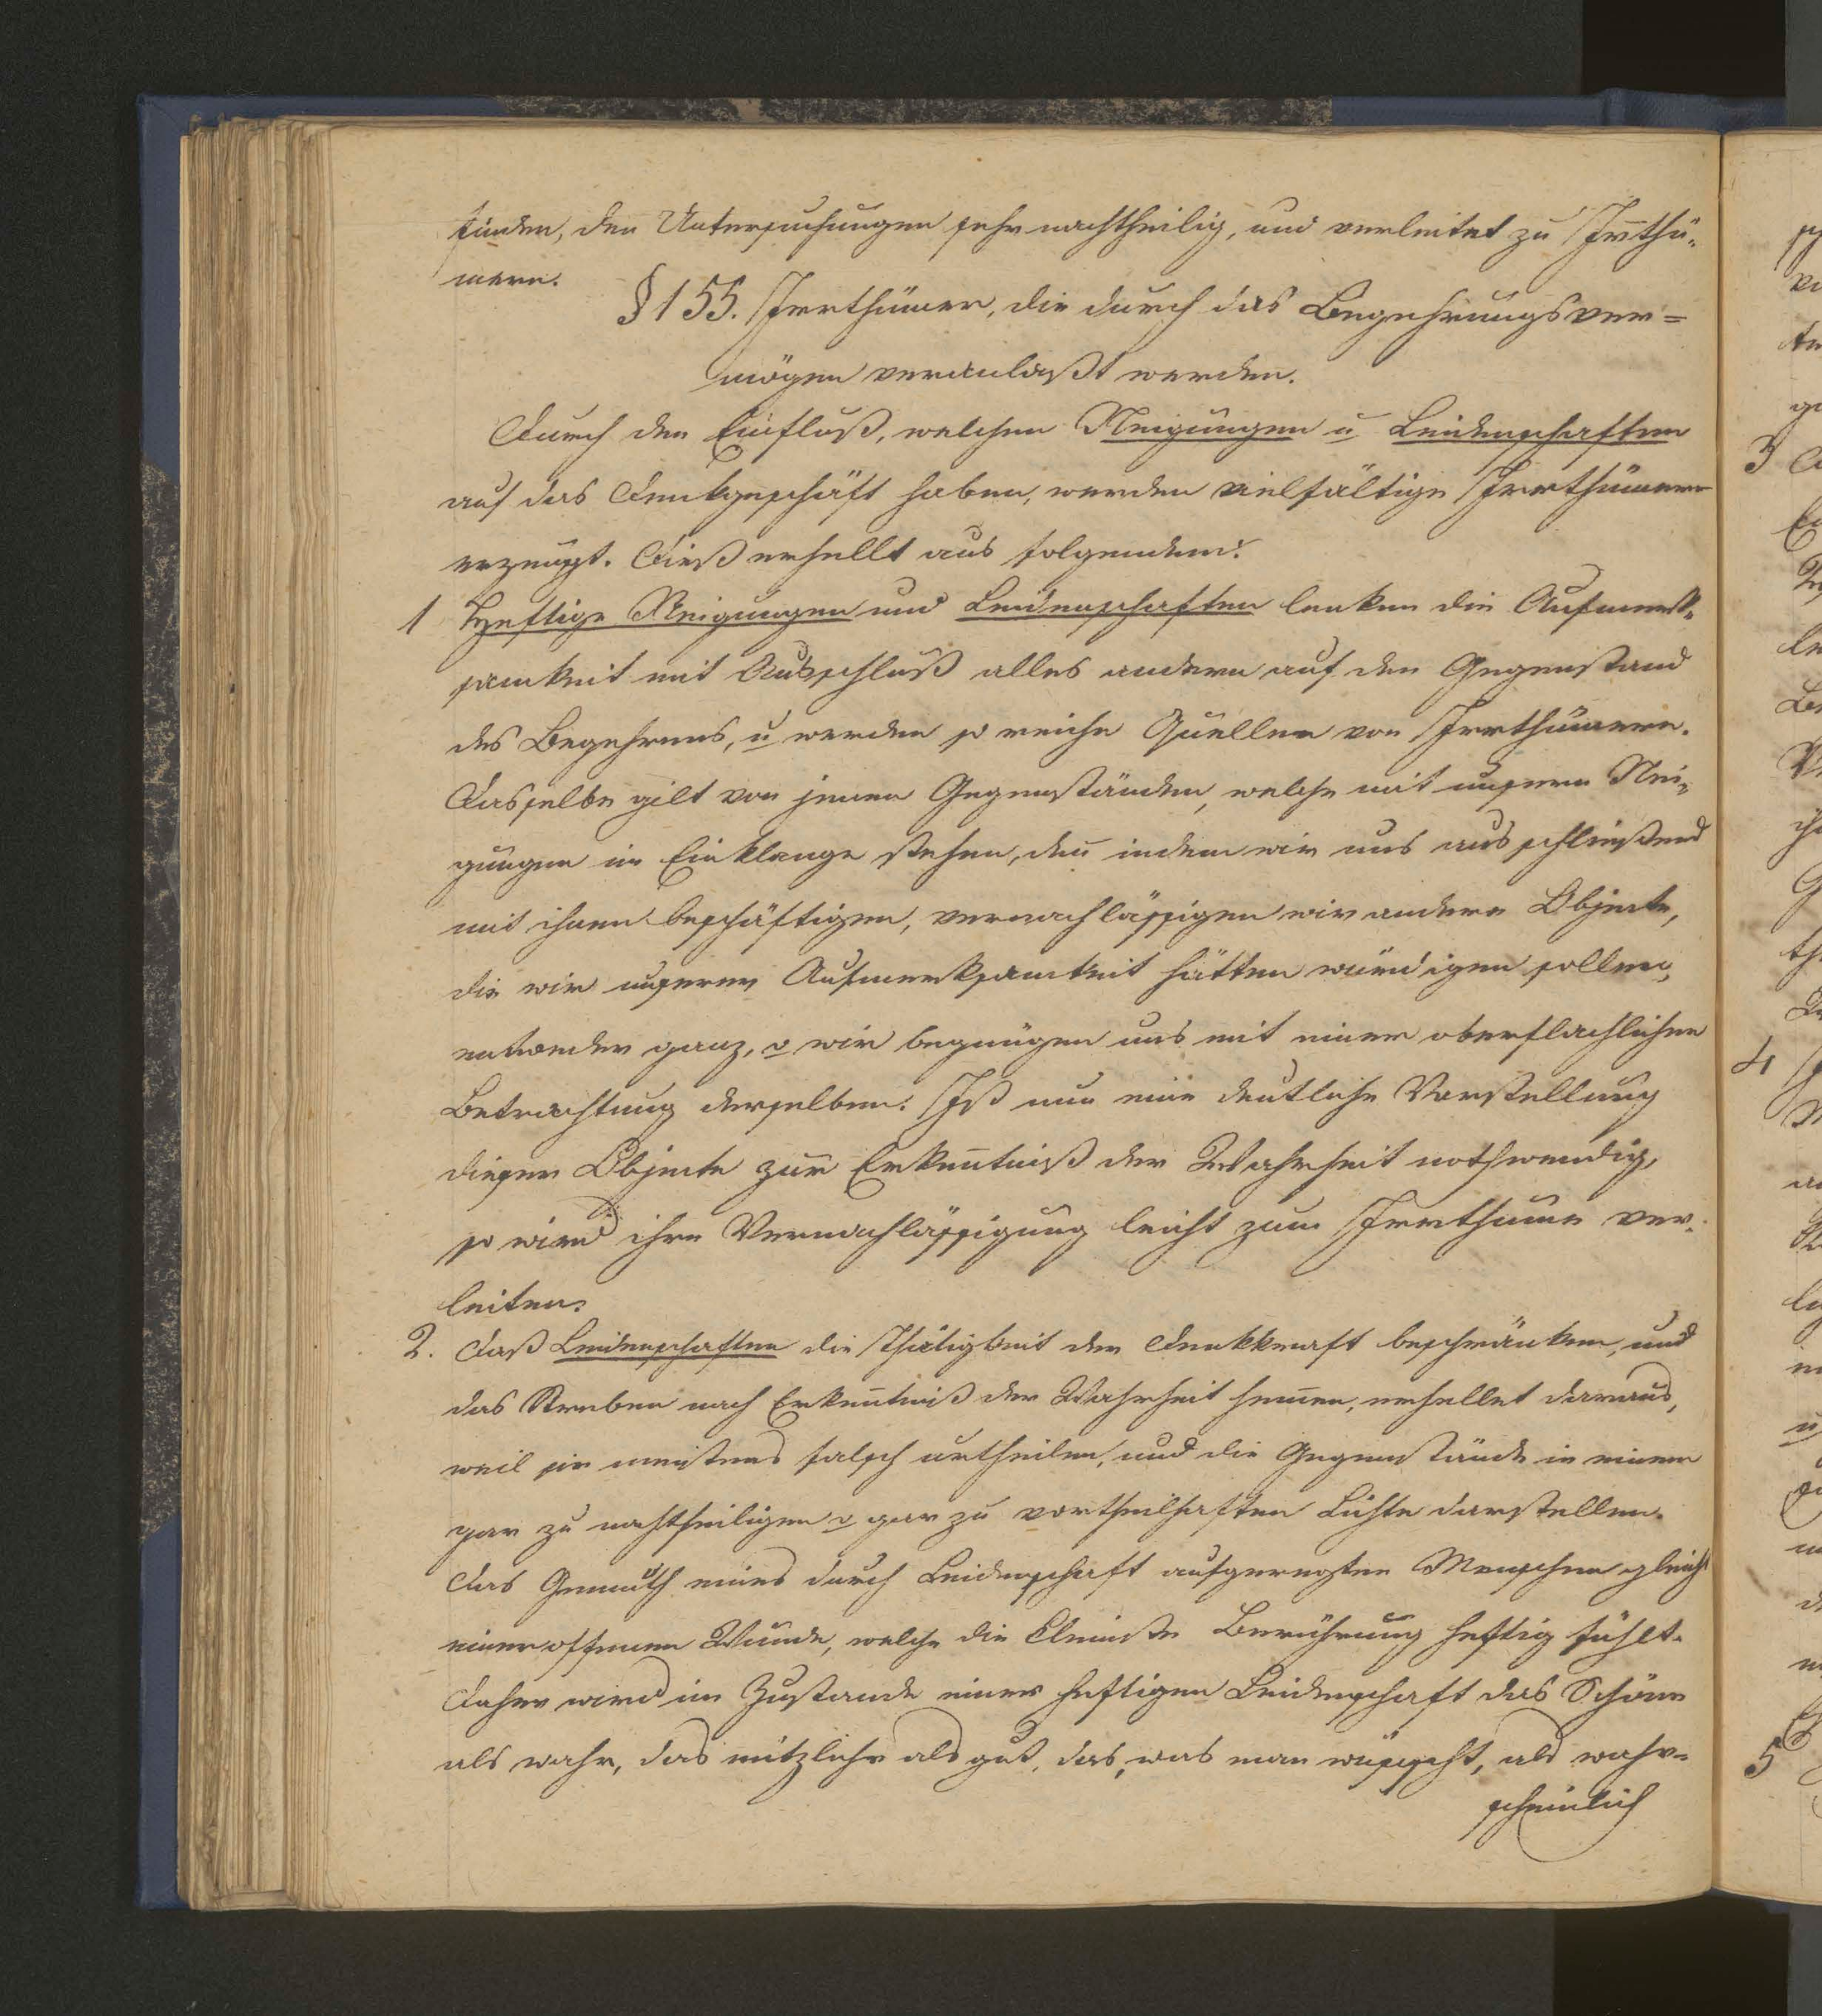 finden, den Untersuchungen sehr nachtheilig, und verleitet zu Irrthü-
mern.
§ 155. Irrthümer, die durch das Begehrungsver=
mögen veranlaßt werden.
Durch den Einfluß, welchen Neigungen u Leidenschaften
auf das Denkgeschäft haben, werden vielfältige Irrthümer
erzeugt. Dieß erhellt aus folgendem:
1 Heftige Neigungen und Leidenschaften lenken die Aufmerk-
samkeit mit Ausschluß alles andern auf den Gegenstand
des Begehrens, u werden so reiche Quellen von Irrthümern.
Dasselbe gilt von jenen Gegenständen, welche mit unsern Nei-
gungen im Einklange stehen, deñ indem wir uns ausschließend
mit ihnen beschäftigen, vernachlässigen wir andere Objecte,
die wir unserer Aufmerksamkeit hätten würdigen sollen,
entweder ganz, o wir begnügen uns mit einer oberflachlichen
Betrachtung derselben. Ist nun eine deutliche Vorstellung
dieser Objecte zur Erkeñtniß der Wahrheit nothwendig,
so wird ihre Vernachlässigung leicht zum Irrthume ver-
leiten.
2. Daß Leidenschaften die Thätigkeit der Denkkraft beschränken, und
das Streben nach Erkeñtniß der Wahrheit hem̃en, erhellet daraus,
weil sie meistens falsch urtheilen, und die Gegenstände in einem
gar zu nachtheiligen o gar zu vortheilhaften Lichte darstellen.
Das Gemüth eines durch Leidenschaft aufgeregten Menschen gleicht
einer offenen Wunde, welche die kleinste Berührung heftig fühlt.
Daher wird im Zustande einer heftigen Leidenschaft das Schöne
als wahr, das nützliche als gut, das, was man wünscht, als wahr=
scheinlich
3
4
5